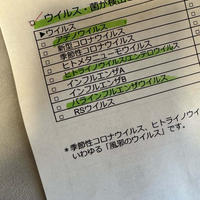 /ウイルス・菌が検出
□ ▶ウイルス
□ アデノウイルス
□ 新型コロナウイルス
□ 季節性コロナウイルス
□ ヒトメタニューモウイルス
□ ヒトライノウイルス/エンテロウイルス
□ インフルエンザA
□ インフルエンザB
□ パラインフルエンザウイルス
□ RSウイルス
*季節性コロナウイルス、ヒトライノウイ
いわゆる「風邪のウイルス」です。